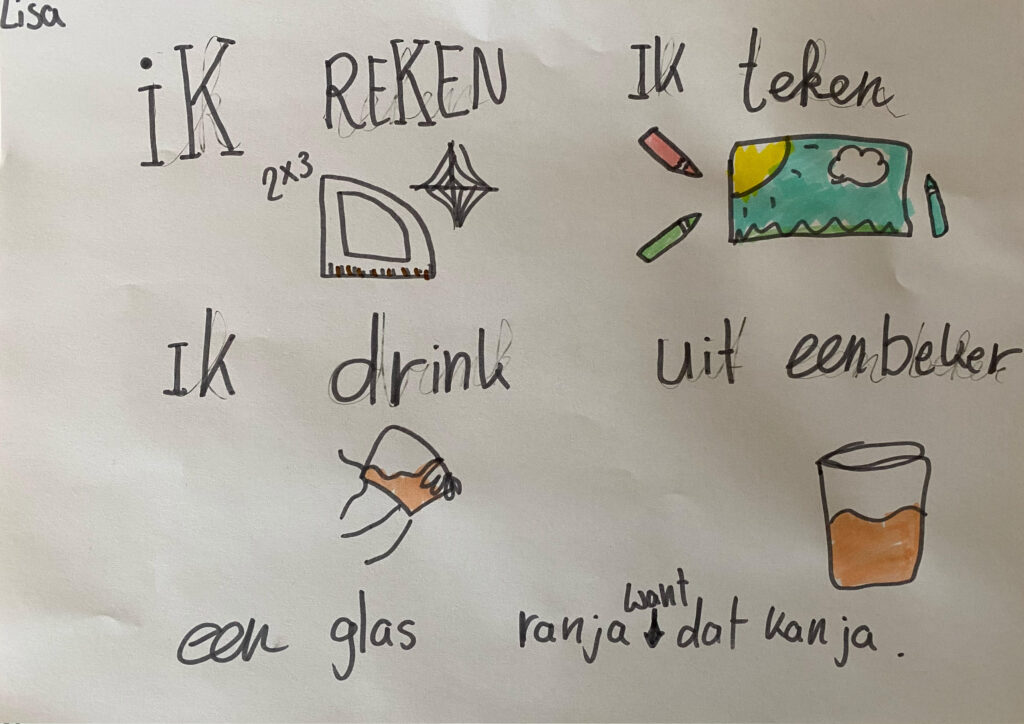 Lisa
iK REKEN IK teken
2x3
Ik drink uit een beker
want
een glas ranja dat kan ja.